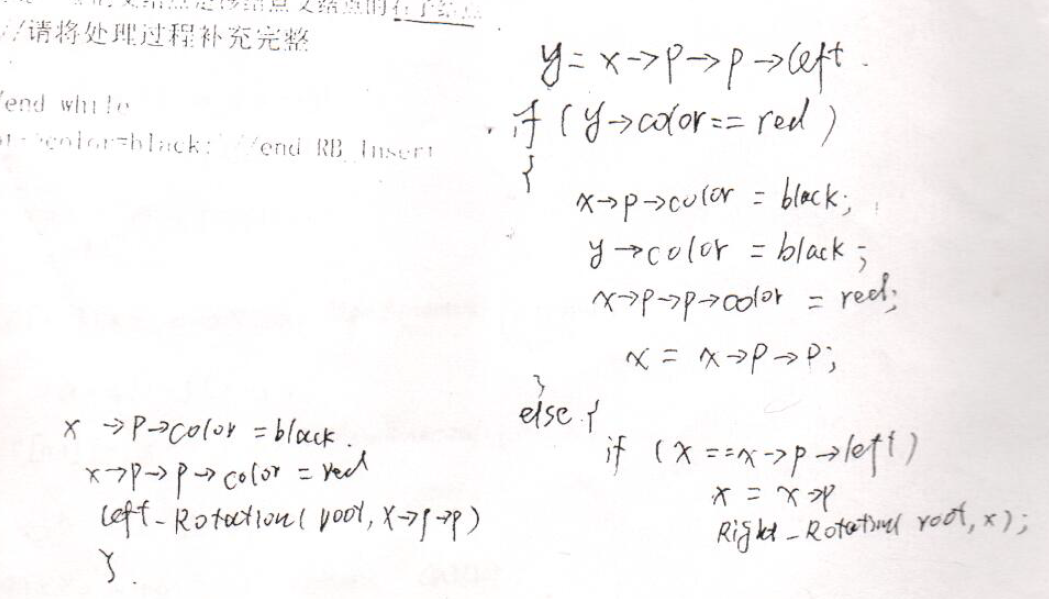 的父结点是该结点父结点的右子结点
//请将处理过程补充完整
/end while
color=black; //end RB_Insert
y = x->p->p->left.
if (y->color== red)
{
x->p->color = black;
y->color = black;
x->p->p->color = red;
x = x->p->p;
}
else {
if (x ==x->p->left)
x = x->p
Right_Rotation( root, x);
x ->p->color = black
x->p->p->color = red
Left_Rotation( root, x->p->p)
}.